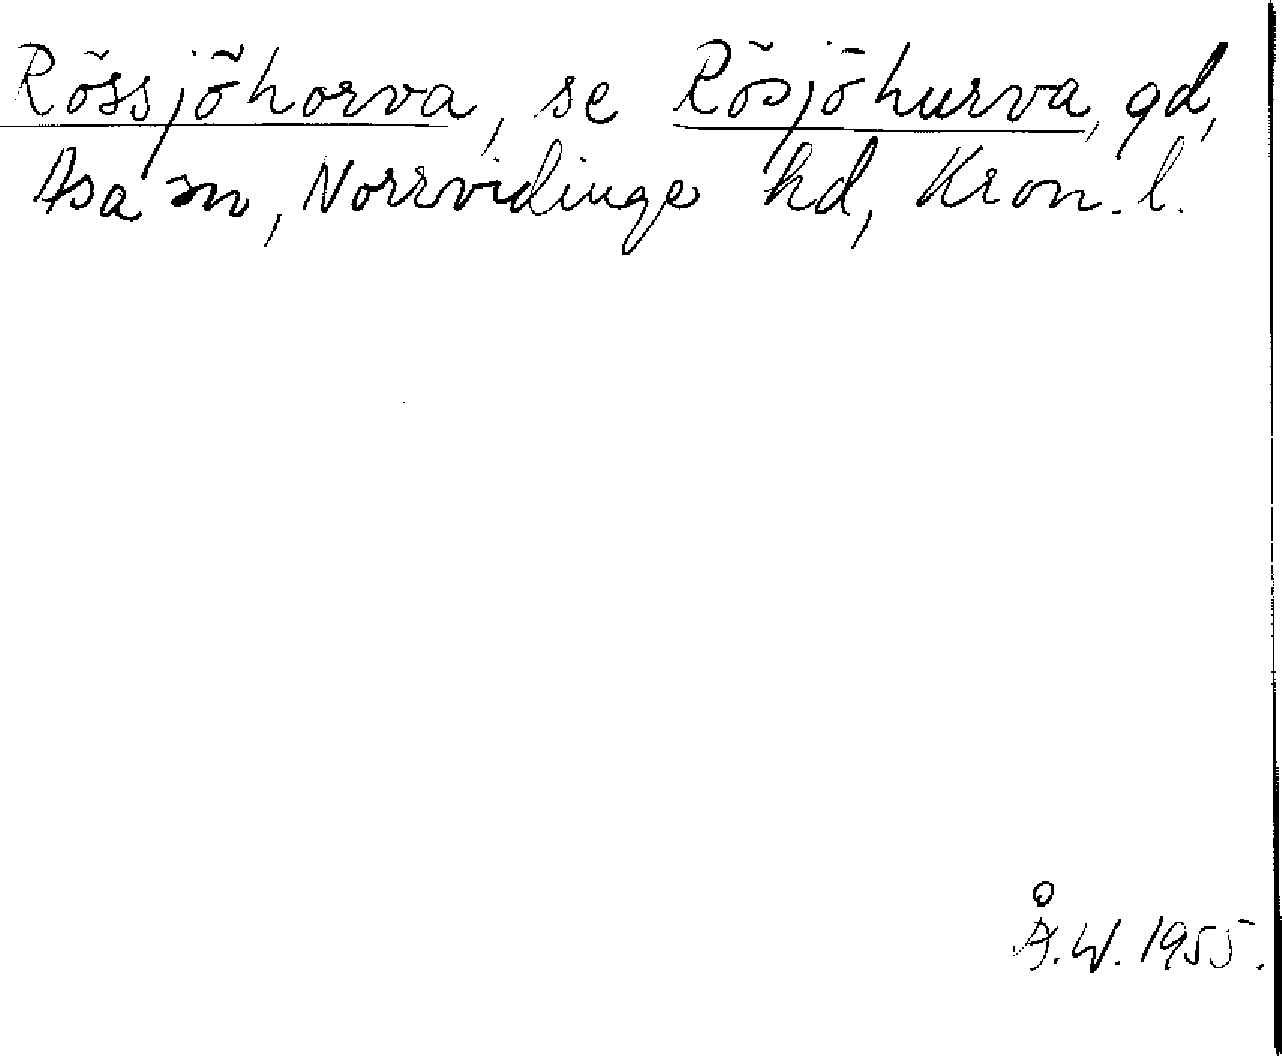 Rössjöhorva, se Rösjöhurva, gd,
Asa sn, Norrvidinge hd, Kron. l.
Å.W. 1955.